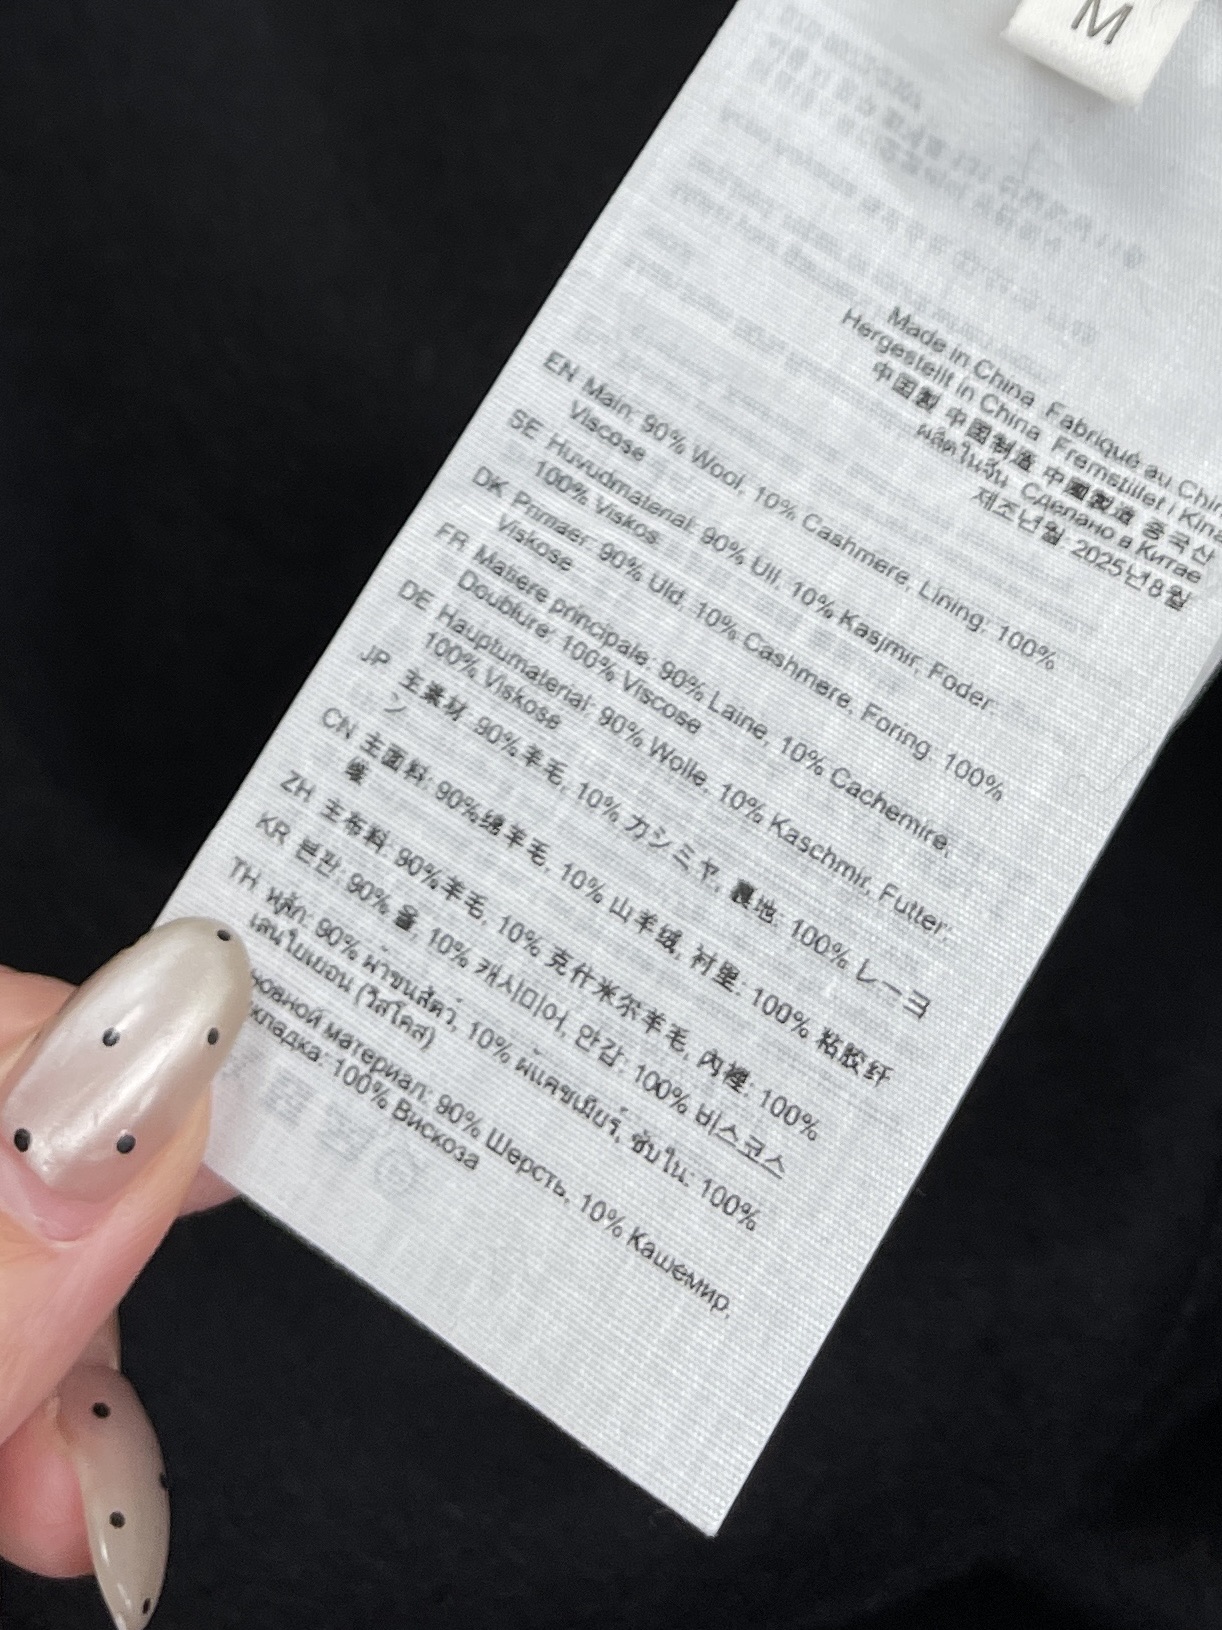 M
Made in China Fabriqué au Chin
Hergestellt in China Fremstillet i Kina
中国製 中国制造 中國製造 중국산
ผลิตในจีน Сделано в Китае
제조년월: 2025년8월
EN Main: 90% Wool, 10% Cashmere, Lining: 100%
Viscose
SE Huvudmaterial: 90% Ull, 10% Kasjmir, Foder:
100% Viskos
DK Primaer: 90% Uld, 10% Cashmere, Foring: 100%
Viskose
FR Matiere principale: 90% Laine, 10% Cachemire,
Doublure: 100% Viscose
DE Hauptumaterial: 90% Wolle, 10% Kaschmir, Futter:
100% Viskose
JP 主素材: 90%羊毛, 10% カシミヤ, 裏地: 100% レーヨ
ン
CN 主面料: 90%绵羊毛, 10% 山羊绒, 衬里: 100% 粘胶纤
维
ZH 主布料: 90%羊毛, 10% 克什米尔羊毛, 內裡: 100%
KR 본판: 90% 울, 10% 캐시미어, 안감: 100% 비스코스
TH หลัก: 90% ผ้าขนสัตว์, 10% ผ้าแคชเมียร์, ซับใน: 100%
เส้นใยเยอน (วิสโคส)
новной материал: 90% Шерсть, 10% Кашемир,
кладка: 100% Вискоза